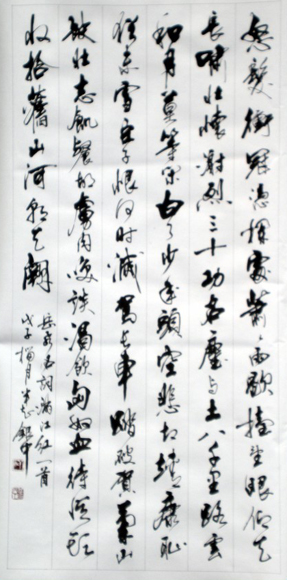 怒髮衝冠憑欄處蕭雨歇抬望眼仰天
長嘯壯懷激烈三十功名塵与土八千里路雲
和月莫等閑白了少年頭空悲切靖康恥
猶未雪臣子恨何时滅駕長車踏破賀蘭山
缺壯志飢餐胡虜肉笑談渴飲匈奴血待從頭
收拾舊山河朝天闕
岳武穆詞滿江紅一首
戊子月